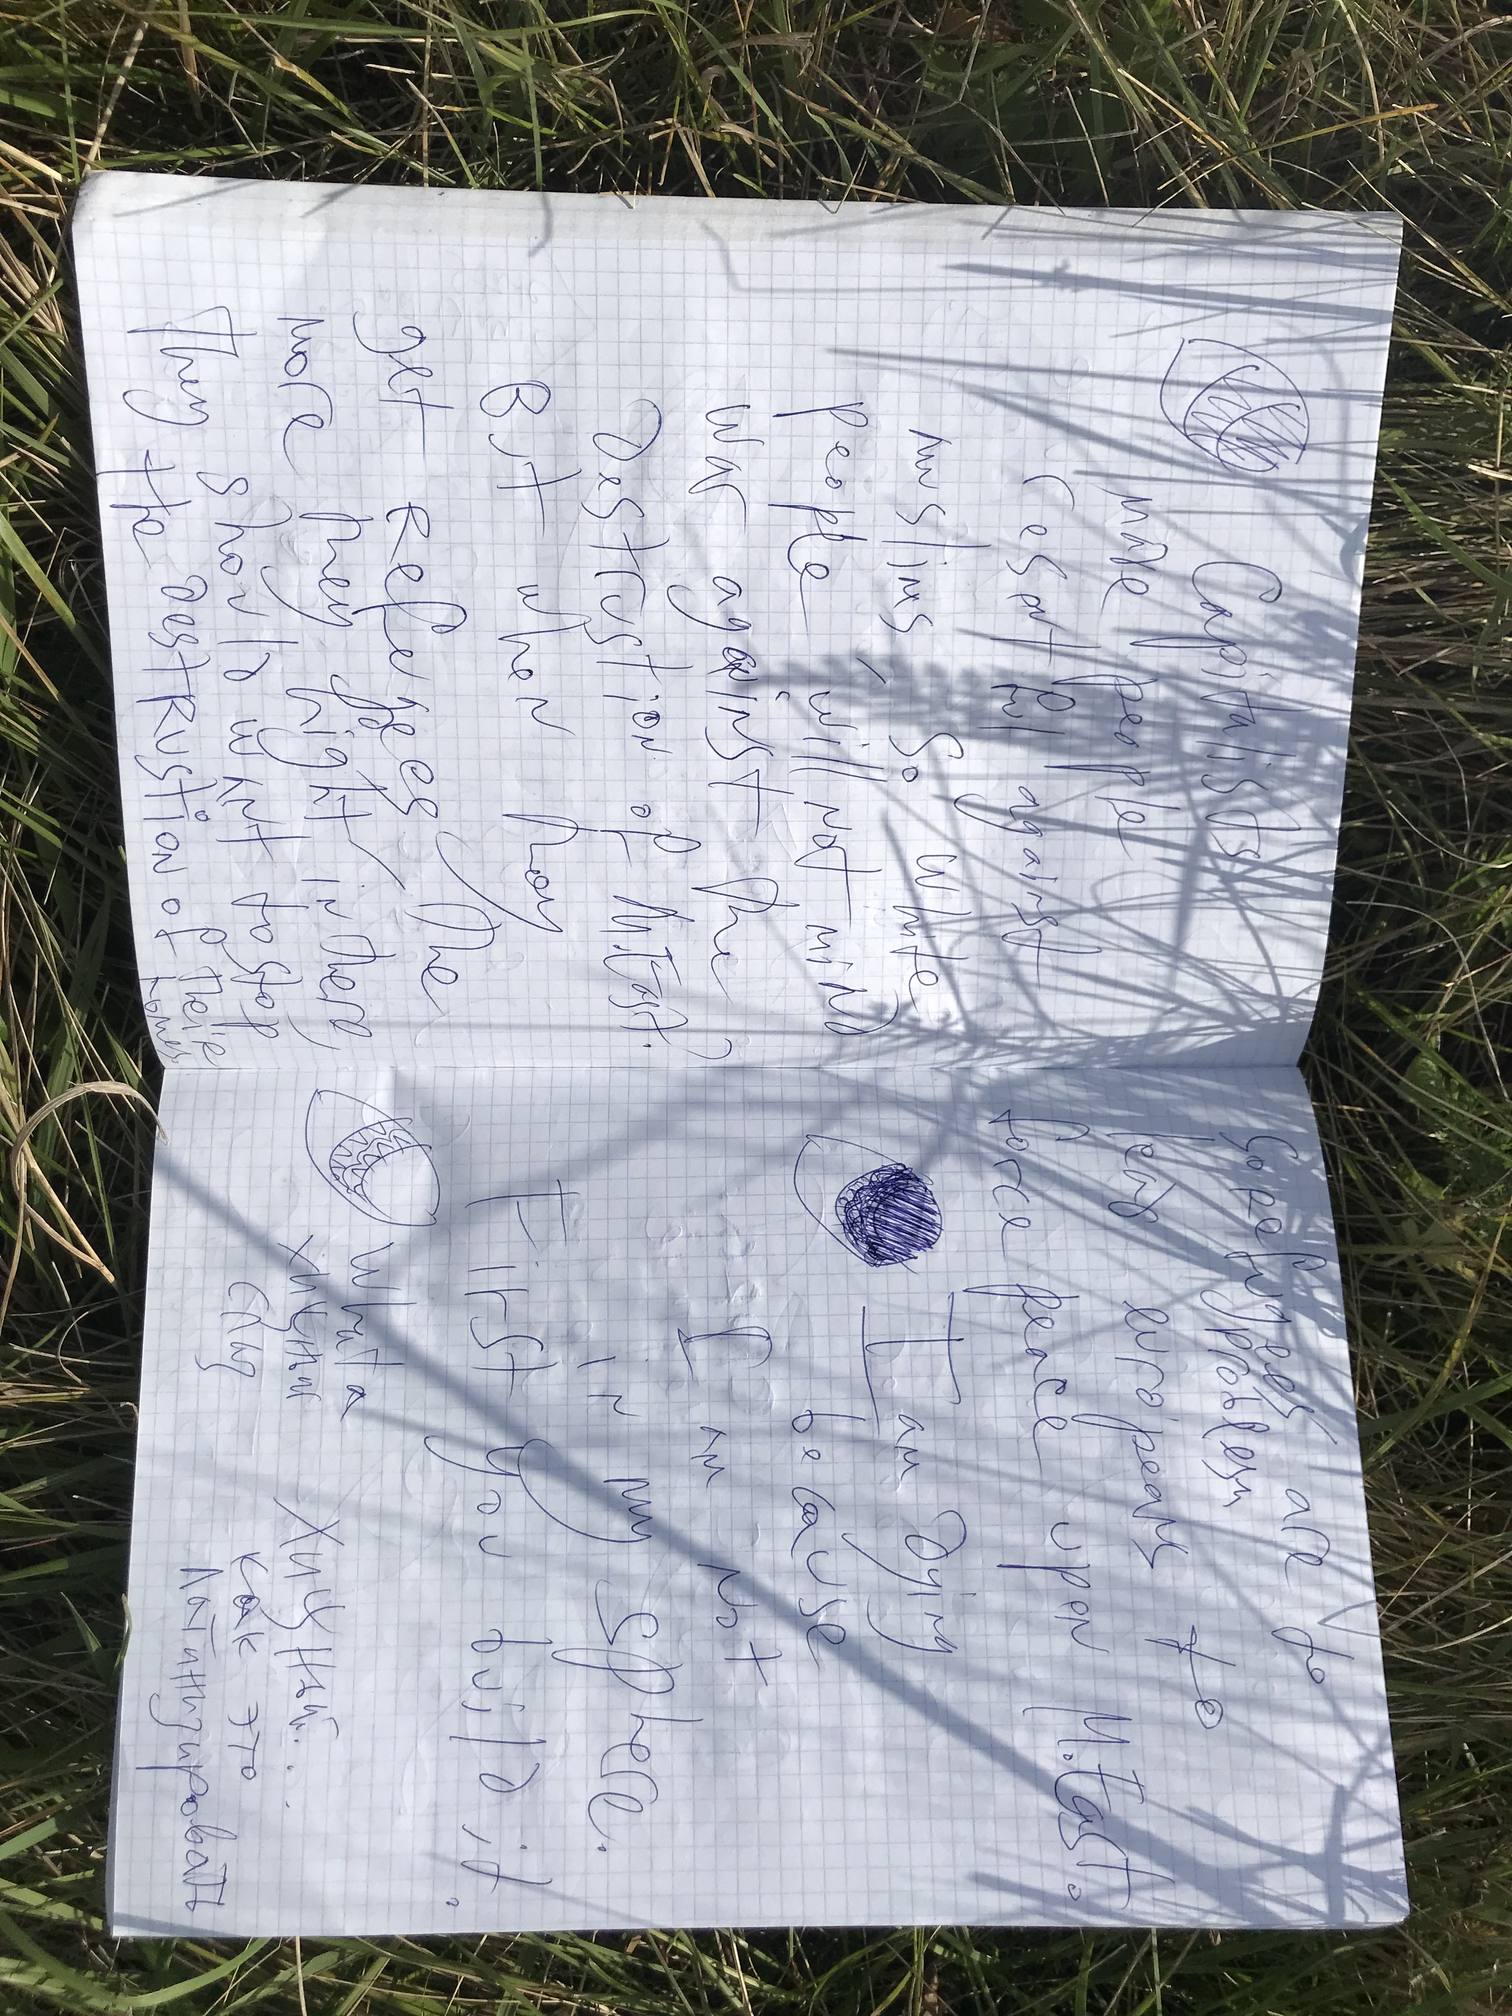 Capitalists
made people
resent PPl against
muslims, so white
people will not mind
War against the
Destrustion of M.East.
But when how
get Refugees, the
more they hight in there,
They should want to stop
the DestRustion of their
homes
So refugees are to
problem
lend europeans to
force peace upon M.East.
I am Dying
because
I am not
in my sphere.
I irst you build it.
What a
хицный
Стид
Хицный...
как это
латинизировать